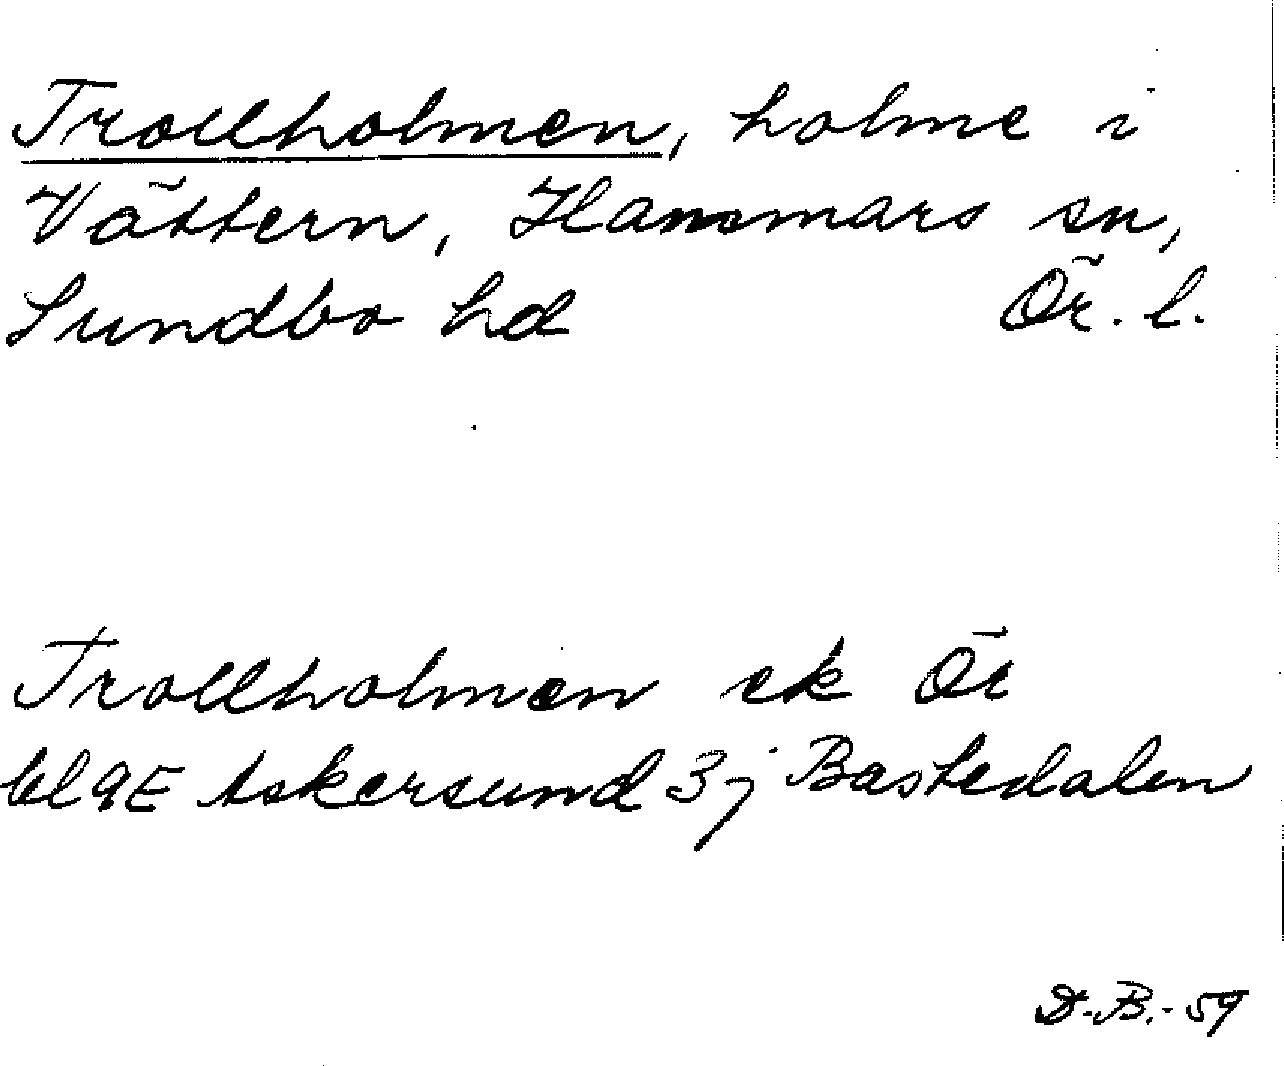 Trollholmen, holme i
Vättern, Hammars sn,
Sundbo hd Ör. l.
Trollholmen ek Ör
bl 9E Askersund 3j Bastedalen
D.B.-59